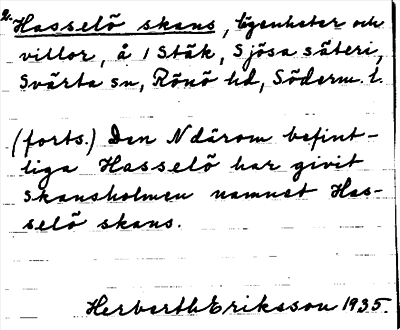 2.
Hasselö skans, lägenheter och
villor, å 1 Stäk, Sjösa säteri,
Svärta sn, Rönö hd, Söderm. l.
(forts.) Den N därom befint-
liga Hasselö har givit
Skansholmen namnet Has-
selö skans.
Herbarth Eriksson 1935.